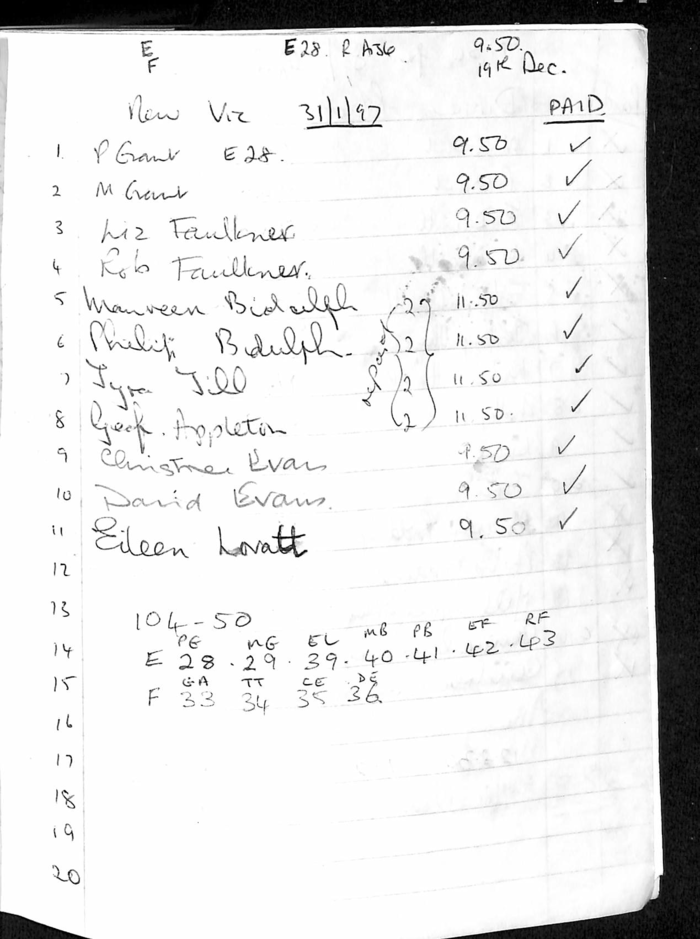 E E28. R A36 9.50.
F 19th Dec.
New Vic 31/1/97 PAID
1. P Grant E 28. 9.50 ✓
2 M Grant 9.50 ✓
3 Liz Faulkner 9.50 ✓
4. Rob Faulkner. 9.50 ✓
5 Maureen Bidulph 2 11.50 ✓
6 Philip Bidulph. 2 11.50 ✓
7 Tyra Till 2 11.50 ✓
8 Geof. Appleton 2 11.50. ✓
9 Christine Evans 9.50 ✓
10 David Evans. 9.50 ✓
11 Eileen Lovatt 9.50 ✓
12
13
104-50
PG MG EL MB PB EF RF
14 E 28 . 29 . 39 . 40 . 41 . 42 . 43
15 GA TT CE DE
F 33 34 35 36
16
17
18
19
20